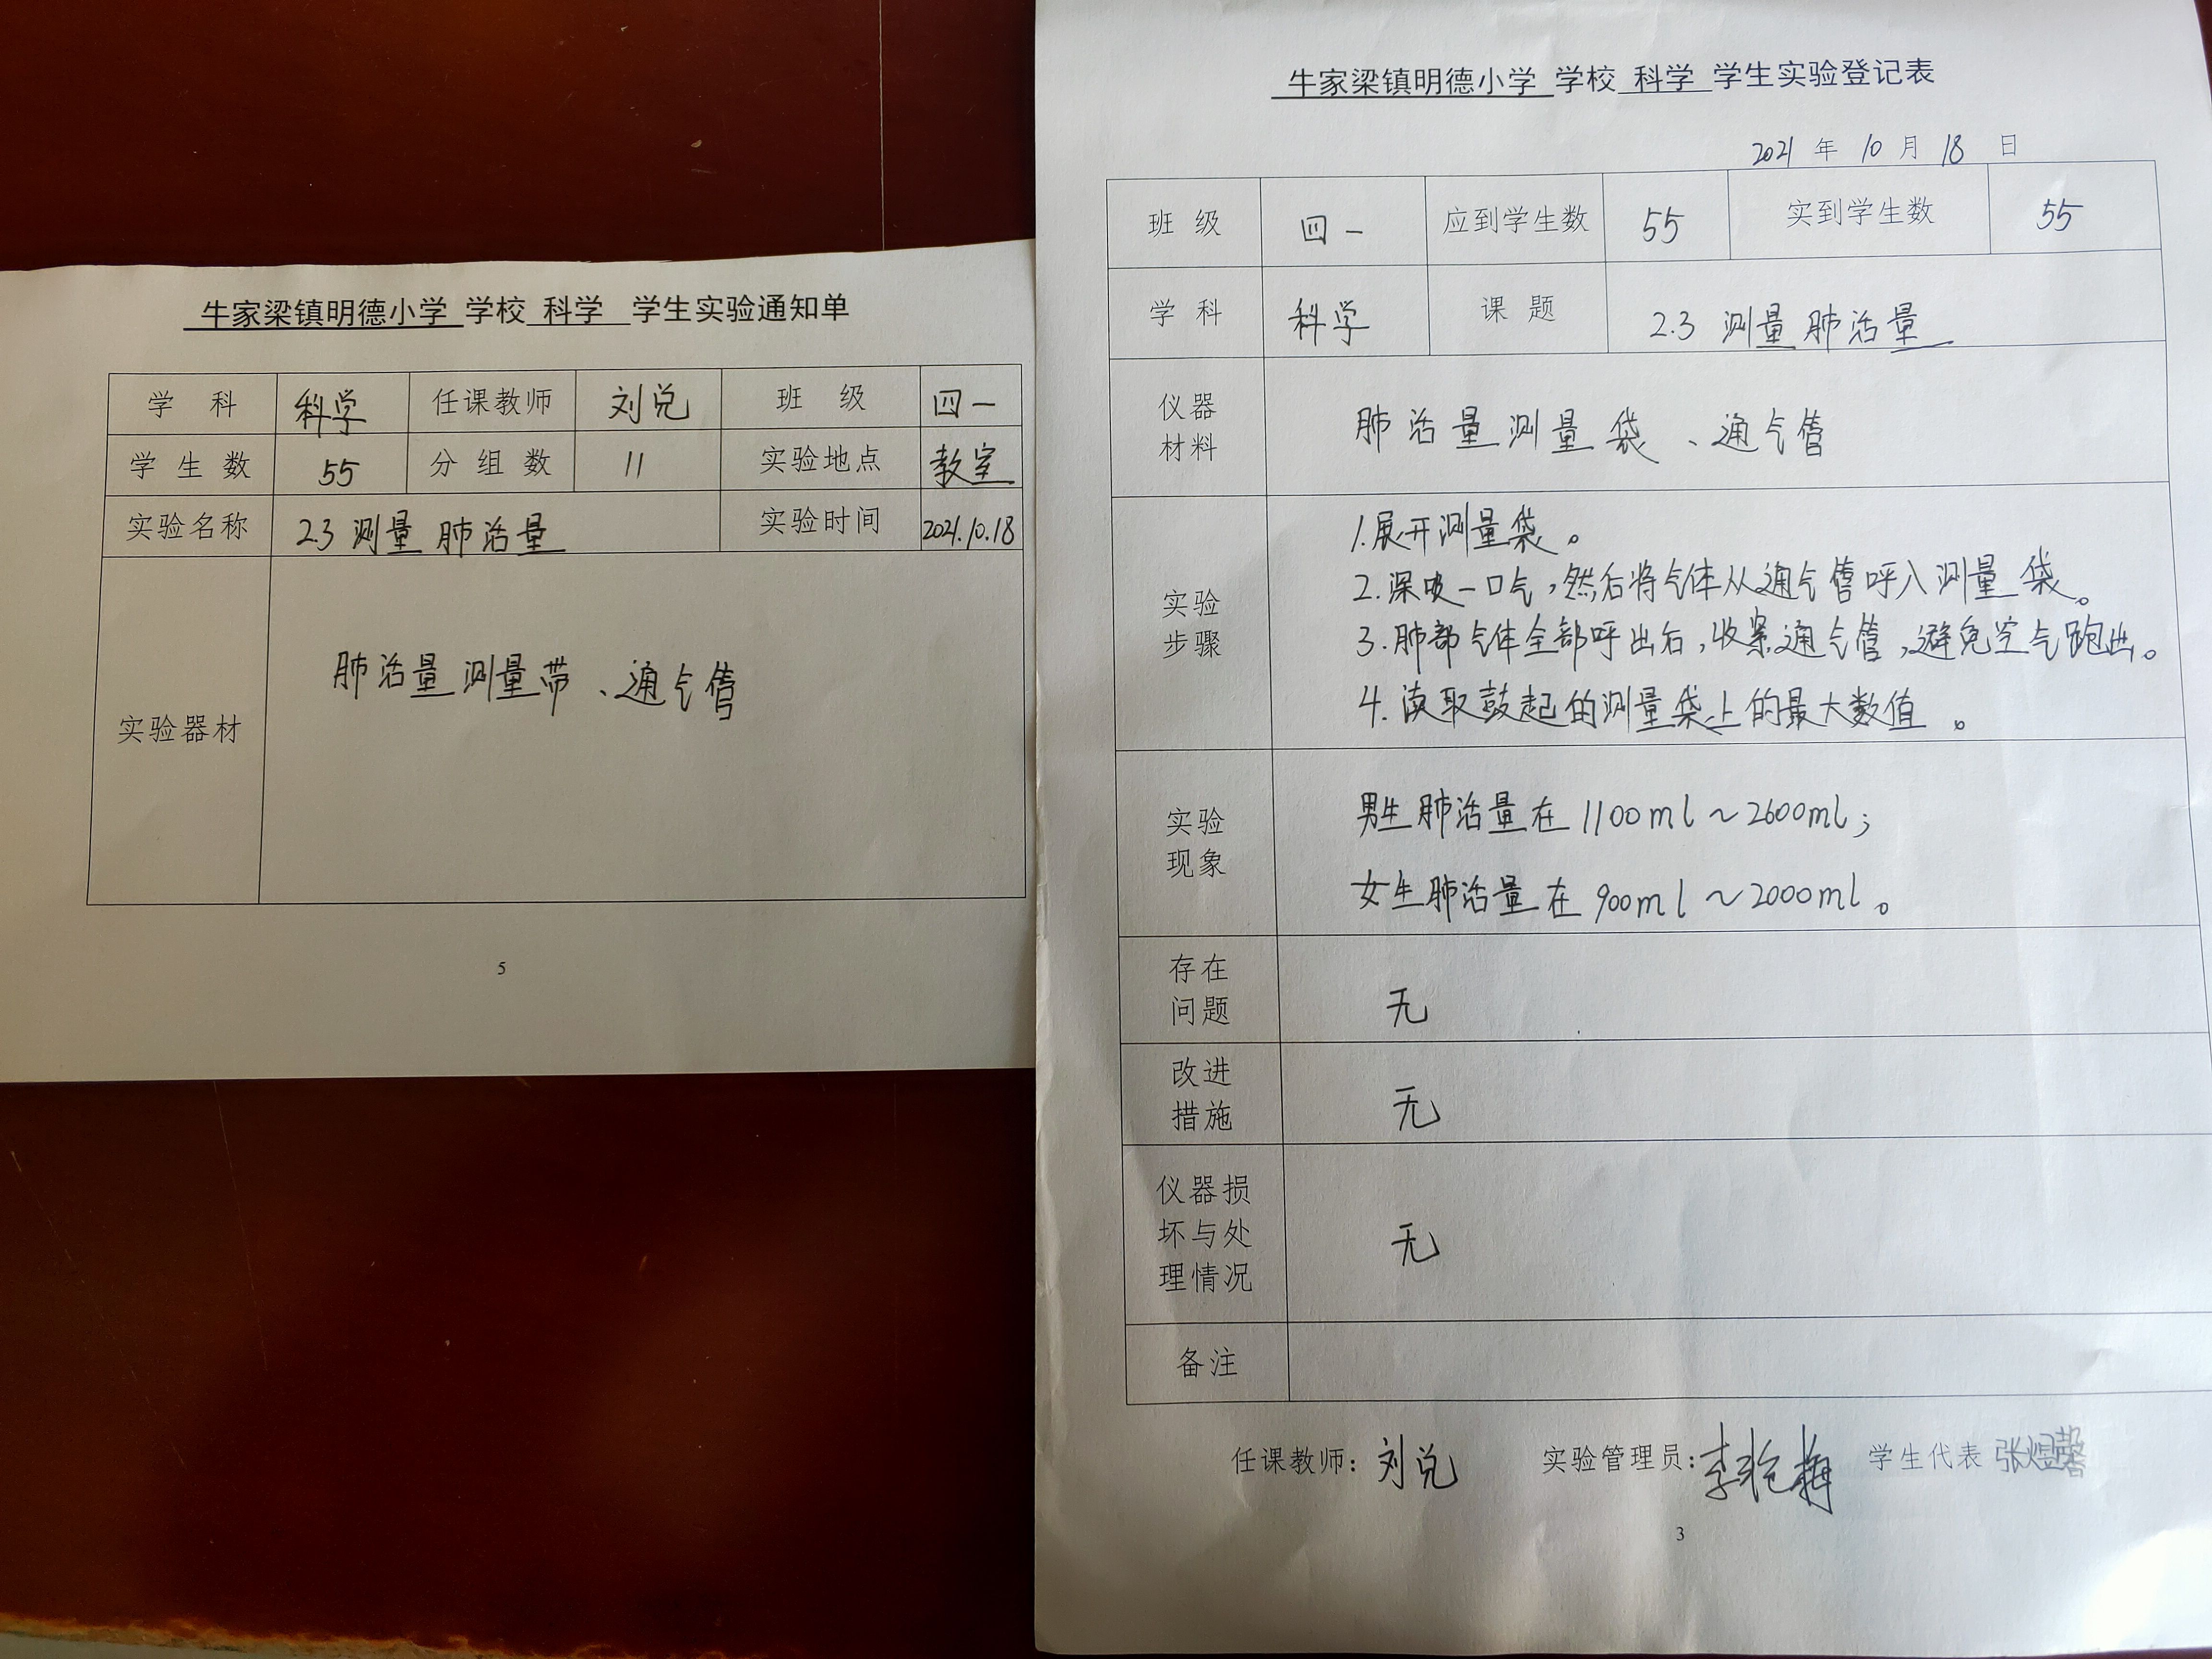 牛家梁镇明德小学 学校 科学 学生实验通知单
学 科 科学 任课教师 刘兑 班 级 四一
学 生 数 55 分 组 数 11 实验地点 教室
实验名称 2.3 测量肺活量 实验时间 2021.10.18
实验器材 肺活量测量带、通气管
5
牛家梁镇明德小学 学校 科学 学生实验登记表
2021 年 10 月 18 日
班 级 四一 应到学生数 55 实到学生数 55
学 科 科学 课 题 2.3 测量肺活量
仪器
材料
肺活量测量袋、通气管
实验
步骤
1.展开测量袋。
2.深吸一口气,然后将气体从通气管呼入测量袋。
3.肺部气体全部呼出后,收紧通气管,避免空气跑出。
4.读取鼓起的测量袋上的最大数值。
实验
现象
男生肺活量在1100ml~2600ml;
女生肺活量在900ml~2000ml。
存在
问题
无
改进
措施
无
仪器损
坏与处
理情况
无
备注
任课教师:刘兑 实验管理员:李艳梅 学生代表 张煜馨
3